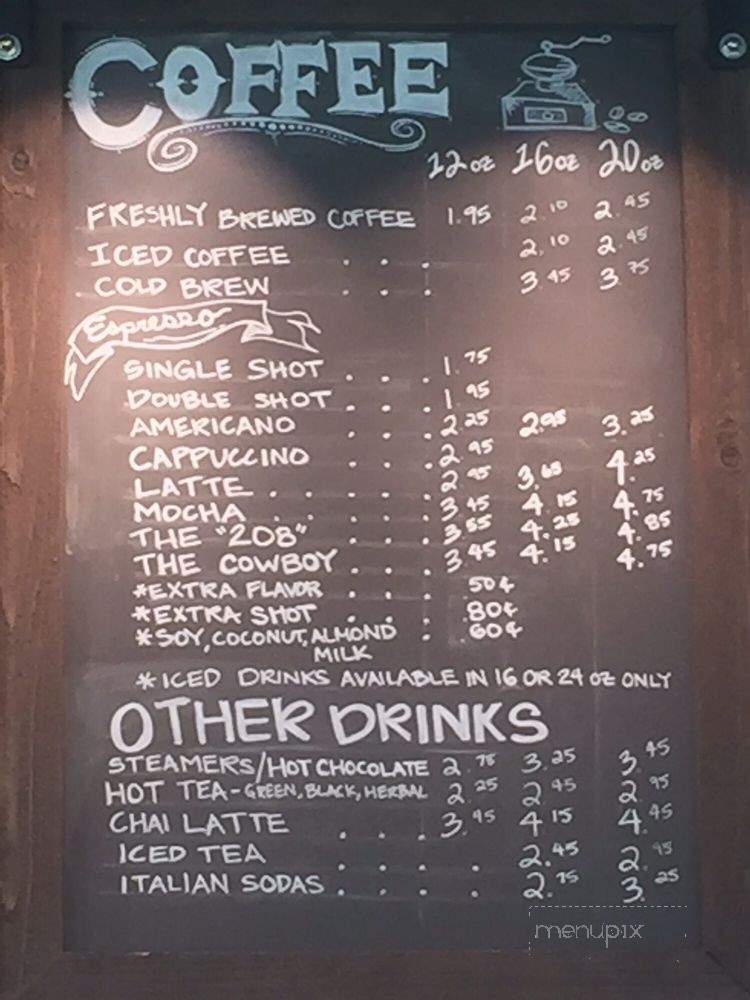 COFFEE
12oz 16oz 20oz
FRESHLY BREWED COFFEE 1.95 2.10 2.45
ICED COFFEE . . . 2.10 2.45
COLD BREW . . . 3.45 3.75
Espresso
SINGLE SHOT . . . 1.75
DOUBLE SHOT . . . 1.95
AMERICANO . . . 2.25 2.95 3.25
CAPPUCCINO . . . 2.95
LATTE . . . . . 2.95 3.65 4.25
MOCHA . . . . . 3.45 4.15 4.75
THE "208" . . . 3.55 4.25 4.85
THE COWBOY . . . 3.45 4.15 4.75
*EXTRA FLAVOR . . . .50¢
*EXTRA SHOT . . . .80¢
*SOY, COCONUT, ALMOND . .60¢
MILK
*ICED DRINKS AVAILABLE IN 16 OR 24 OZ ONLY
OTHER DRINKS
STEAMERS/HOT CHOCOLATE 2.75 3.25 3.45
HOT TEA - GREEN, BLACK, HERBAL 2.25 2.45 2.95
CHAI LATTE . . . 3.95 4.15 4.45
ICED TEA . . . . 2.45 2.95
ITALIAN SODAS . . . . 2.75 3.25
menupix